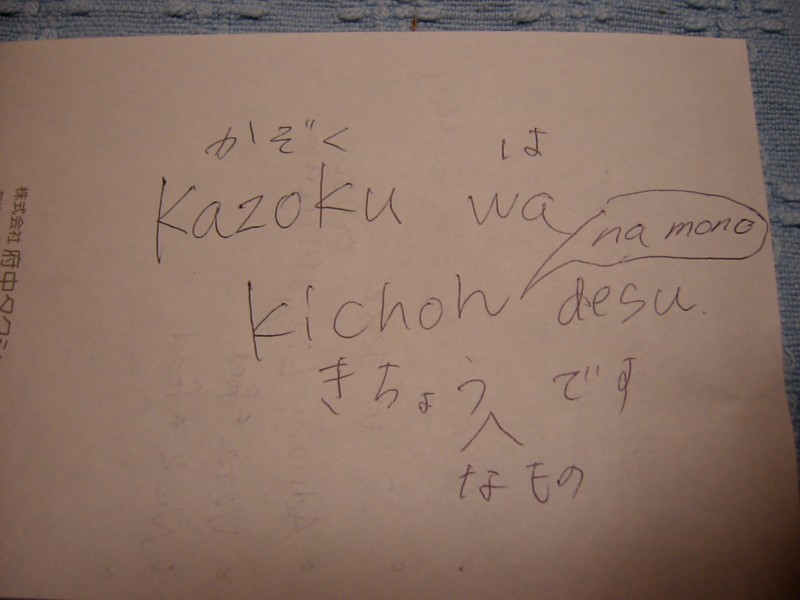 かぞく は
Kazoku wa
na mono
Kichoh desu.
きちょう です
なもの
株式会社 府中タクシ